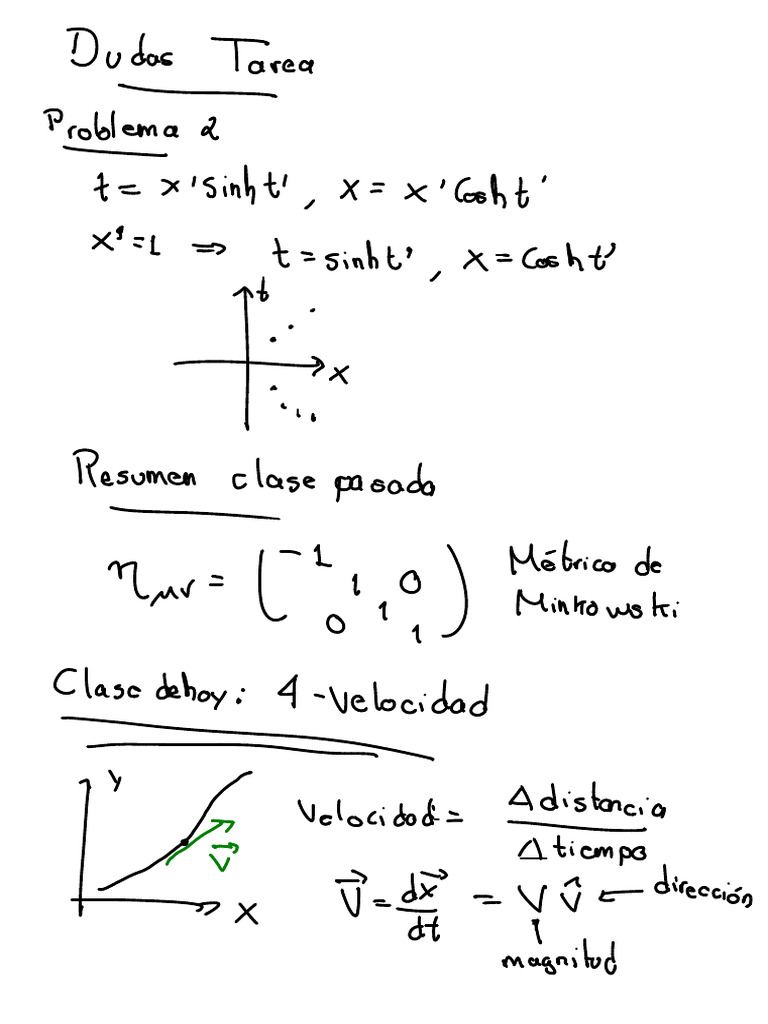 Dudas Tarea
Problema 2
t = x' sinh t' , x = x' Cosh t'
x' = 1 ⇒ t = sinh t' , x = Cosh t'
t
x
Resumen clase pasada
η_μν = ( -1 1 0 0 1 1 ) Métrica de
Minkowski
Clase de hoy: 4-velocidad
y
Velocidad = Δ distancia / Δ tiempo
v⃗
v⃗ = dx⃗/dt = v v̂ ← dirección
x
magnitud